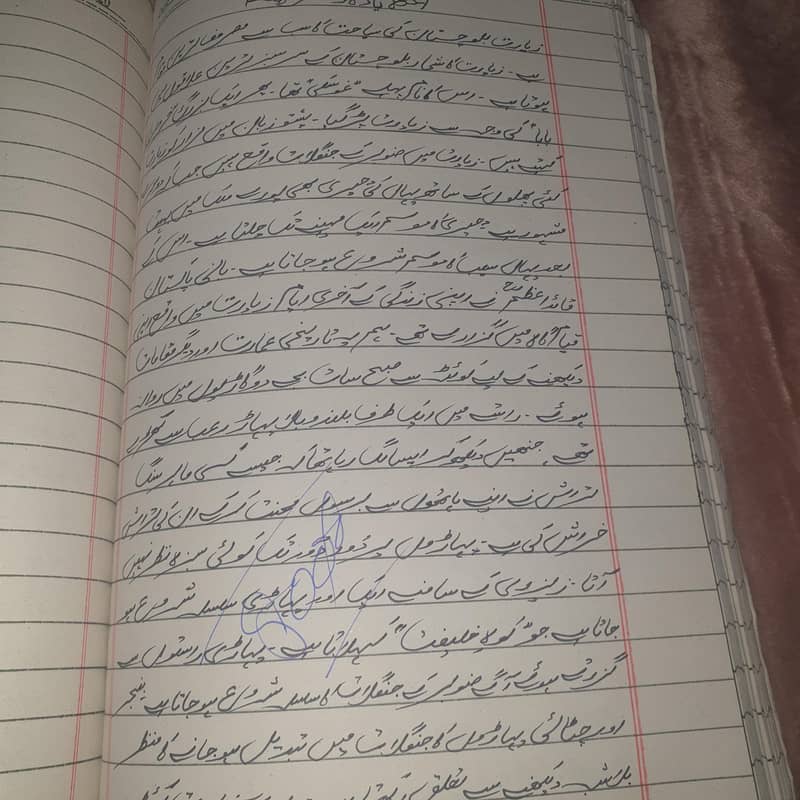 زیارت بلوچستان کی سیاحت کا سب سے معروف ترین
ہے۔ زیارت کا شمار بلوچستان کے سرسبز ترین علاقوں
ہوتا ہے۔ اس کا نام پہلے "غوسکی" تھا۔ پھر ایک بزرگ
بابا" کی وجہ سے زیارت پڑ گیا۔ پشتو زبان میں مزار کو زیارت
کہتے ہیں۔ زیارت میں صنوبر کے جنگلات واقع ہیں جہاں
کئی پھلوں کے ساتھ یہاں کی چیری بھی پورے ملک میں بہت
مشہور ہے۔ چیری کا موسم ایک مہینے تک چلتا ہے۔ اس کے
بعد یہاں سیب کا موسم شروع ہو جاتا ہے۔ بانی پاکستان
قائداعظمؒ نے اپنی زندگی کے آخری ایام زیارت میں واقع اپنی
قیام گاہ میں گزارے تھے۔ ہم یہ تاریخی عمارت اور دیگر مقامات
دیکھنے کے لیے کوئٹہ سے صبح سات بجے دو گاڑیوں میں روانہ
ہوئے۔ راستے میں ایک طرف بلند و بالا پہاڑ رعب سے کھڑے
تھے جنہیں دیکھ کر ایسا لگ رہا تھا کہ جیسے کسی ماہر سنگ
تراش نے اپنے ہاتھوں سے برسوں محنت کر کے ان کی تراش
خراش کی ہے۔ پہاڑوں پر دور دور تک کوئی سبزہ نظر نہیں
آتا۔ کے سامنے ایک اور پہاڑی سلسلہ شروع ہو
جاتا ہے جو "کولا خلیفت" کہلاتا ہے۔ پہاڑی رستوں سے
گزرتے ہوئے آگے صنوبر کے جنگلات کا سلسلہ شروع ہو جاتا ہے۔ بنجر
اور چٹائی پہاڑوں کا جنگلات میں تبدیل ہو جانے کا منظر
دیکھنے سے تعلق